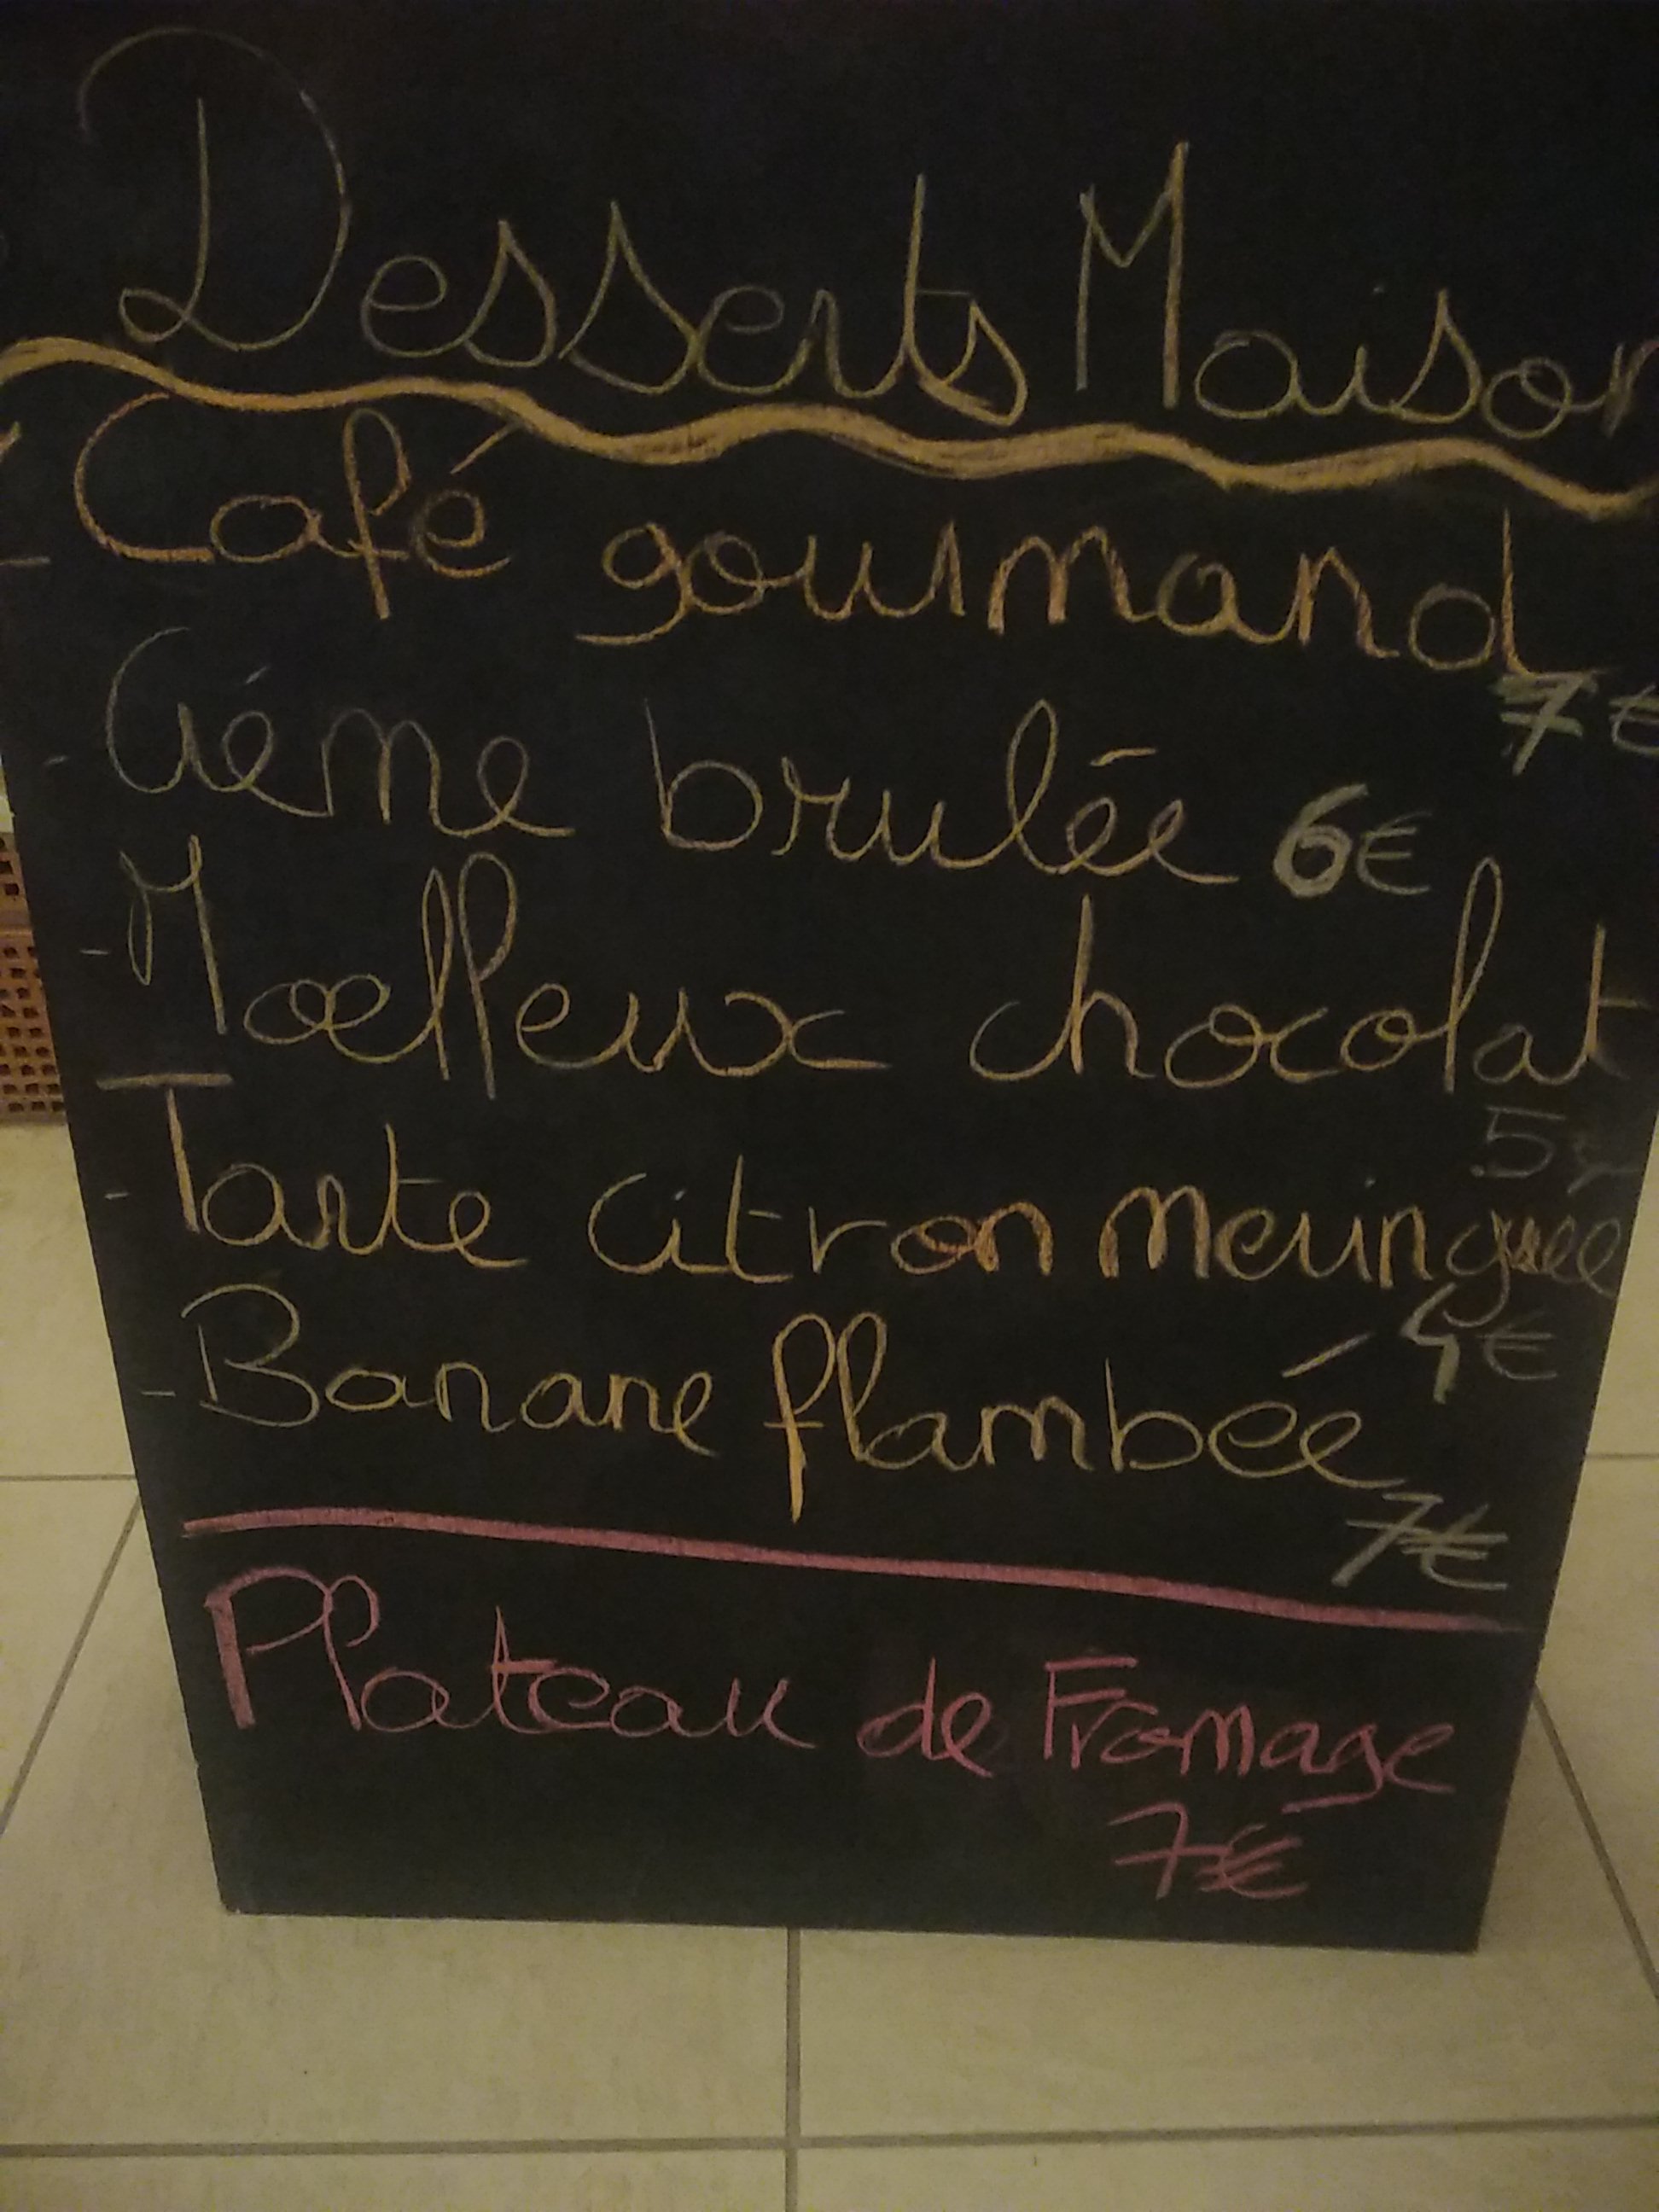 Desserts Maison
- Café gourmand
7€
- Créme brulée 6€
- Moelleux chocolat
5
- Tarte citron meringuee
€
- Banane flambée
7€
Plateau de Fromage
7€